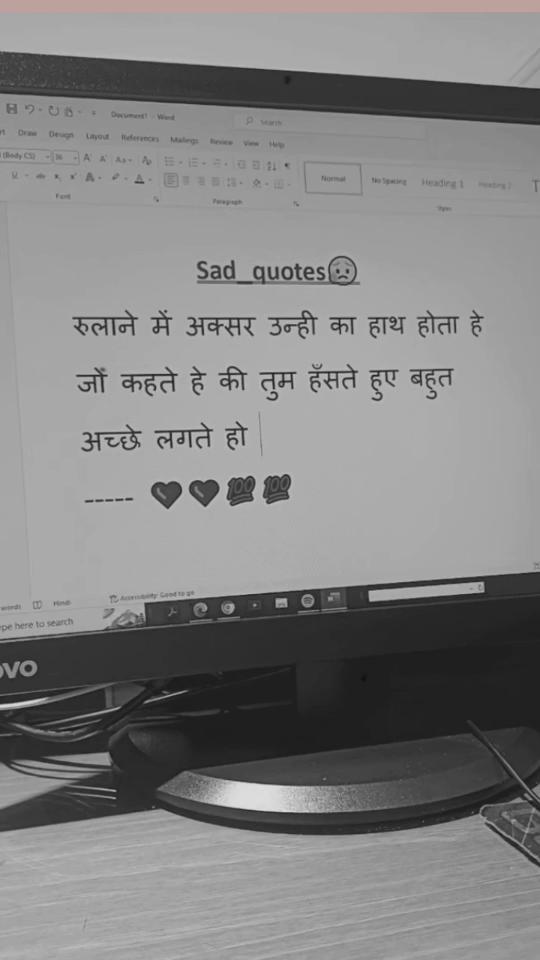 Document1 - Word
Search
Draw Design Layout References Mailings Review View Help
(Body CS) 36
Normal No Spacing Heading 1 Heading 2
Font Paragraph Styles
Sad_quotes😟
रुलाने में अक्सर उन्ही का हाथ होता हे
जों कहते हे की तुम हँसते हुए बहुत
अच्छे लगते हो
----- ❤❤💯💯
words Hindi Accessibility: Good to go
pe here to search
ovo